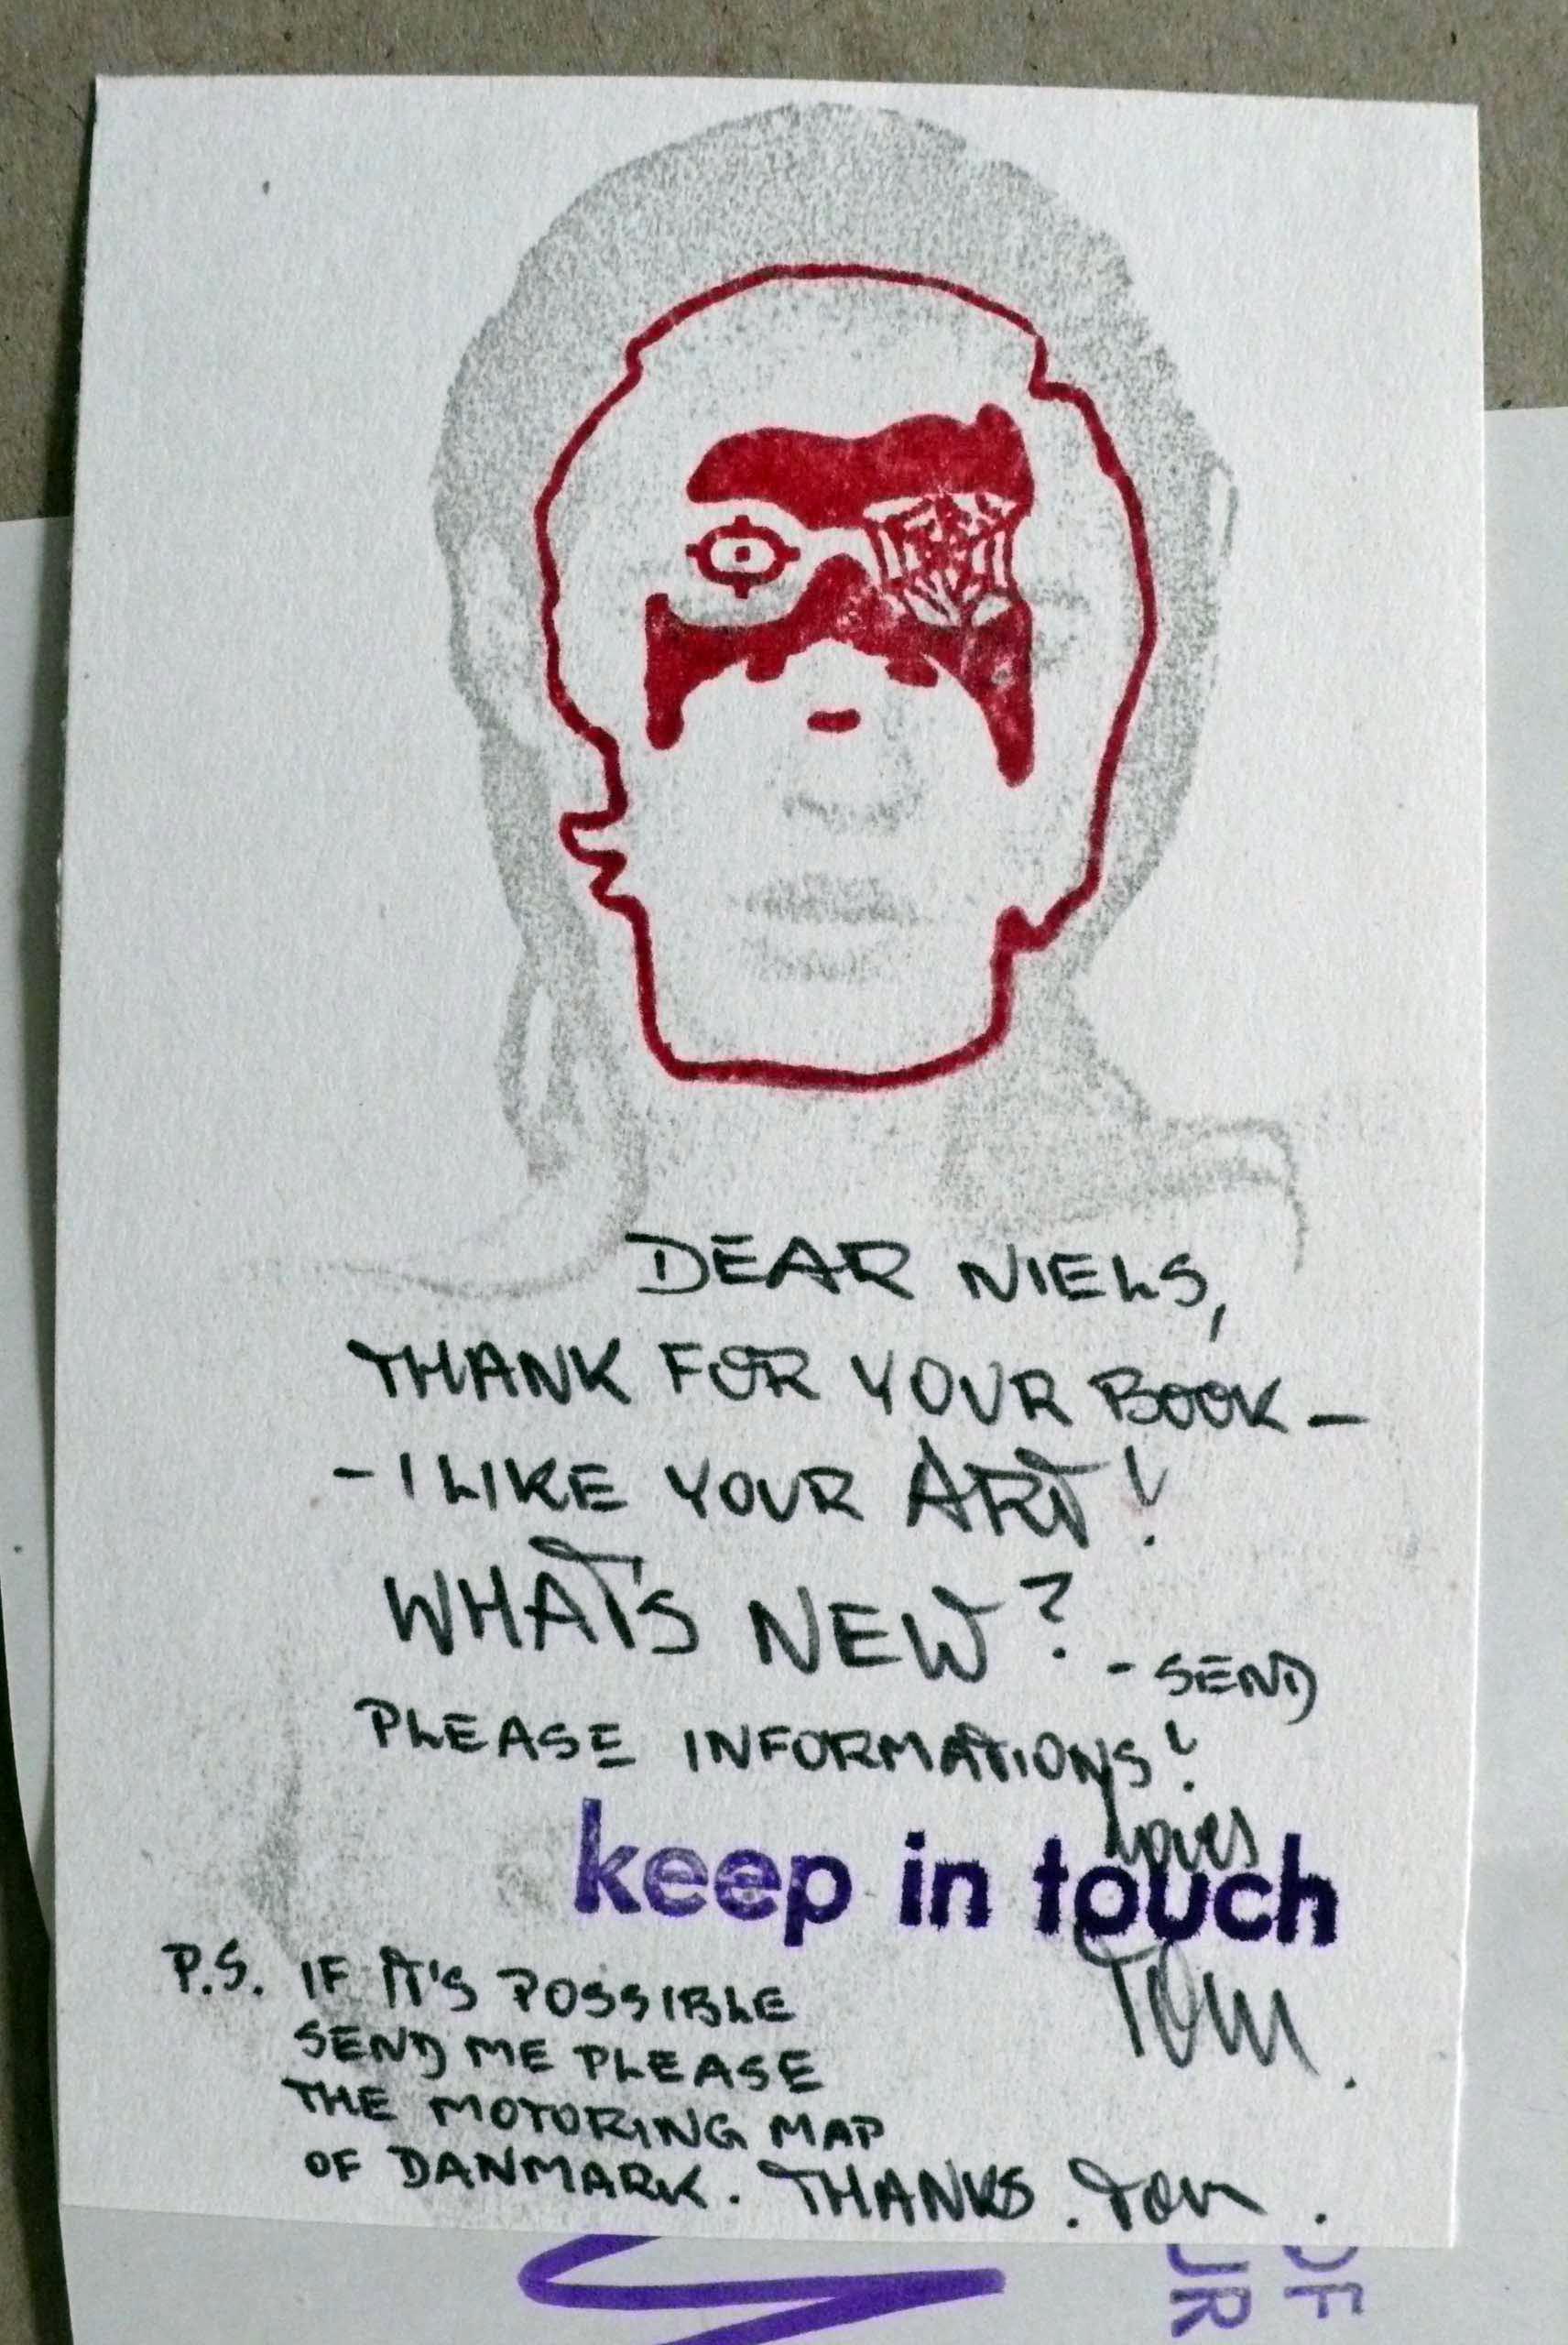 DEAR NIELS,
THANK FOR YOUR BOOK –
– I LIKE YOUR ART!
WHAT'S NEW? – SEND
PLEASE INFORMATIONS!
Loves
keep in touch
TOM.
P.S. IF IT'S POSSIBLE
SEND ME PLEASE
THE MOTORING MAP
OF DANMARK. THANKS. Tom.
OF
UR